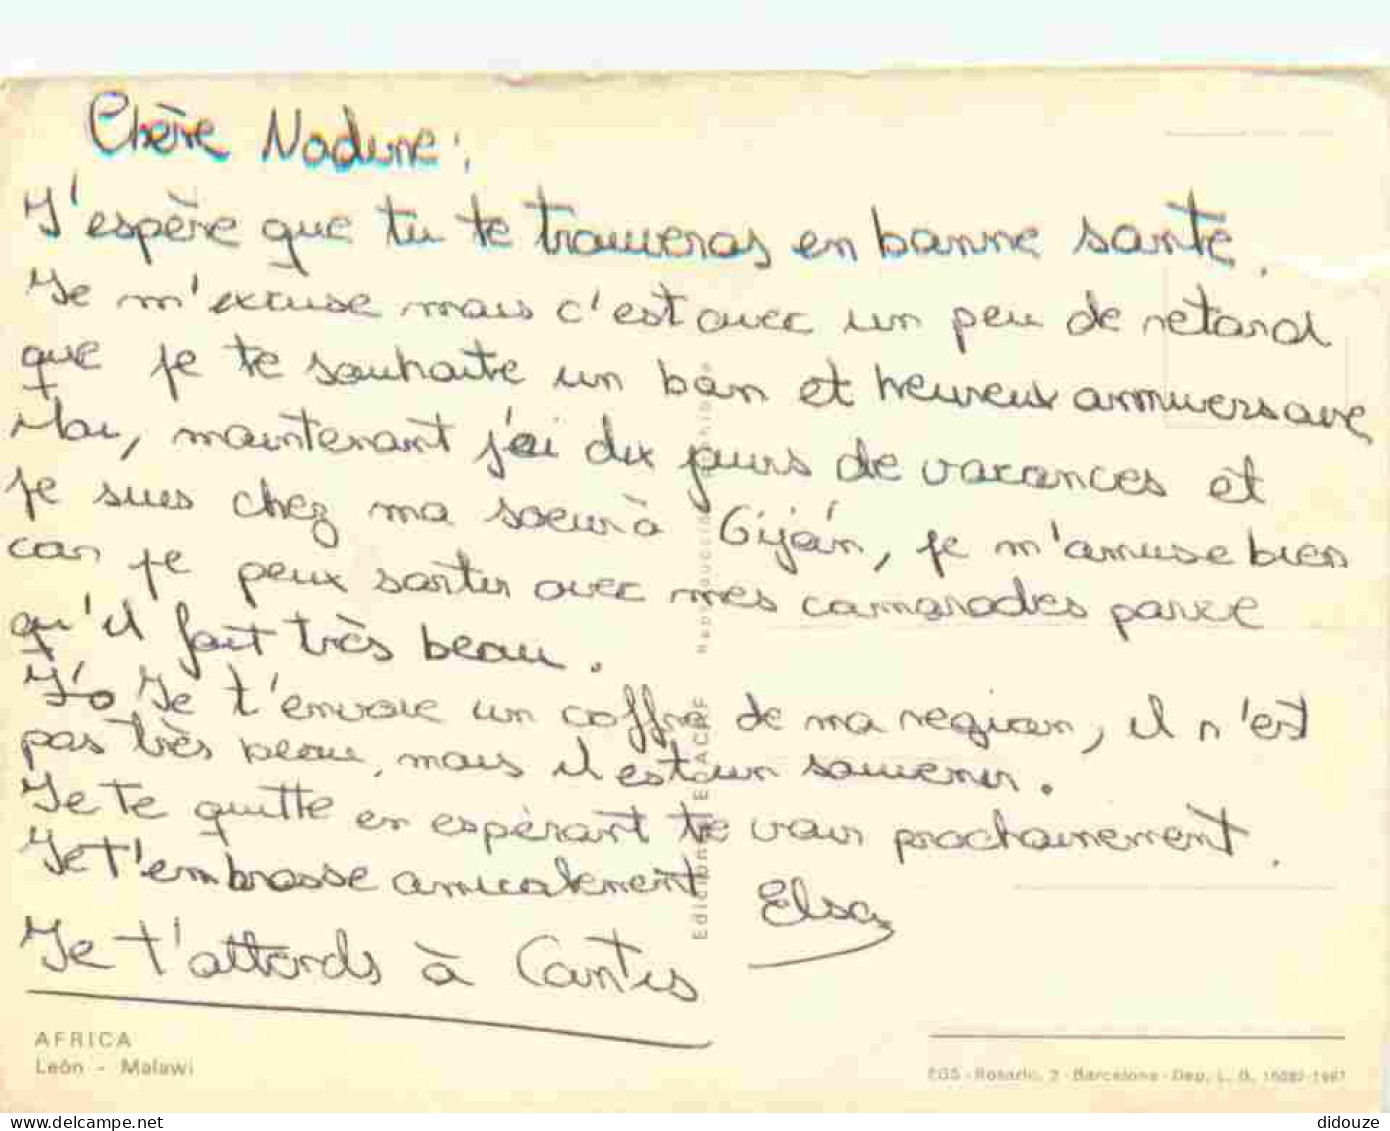 Chère Nadine :
J'espère que tu te trouveras en bonne santé.
Je m'excuse mais c'est avec un peu de retard
que je te souhaite un bon et heureux anniversaire
Moi, maintenant j'ai dix jours de vacances et
je suis chez ma soeur à Gijón, je m'amuse bien
car je peux sortir avec mes camarades parce
qu'il fait très beau.
Je t'envoie un coffre de ma region, il n'est
pas très beau, mais il est un souvenir.
Je te quitte en espérant te voir prochainement.
Je t'embrasse amicalement
Elsa
Je t'attends à Cantis
AFRICA
León - Malawi
EGS - Rosario, 2 - Barcelona - Dep. L. B.
didouze